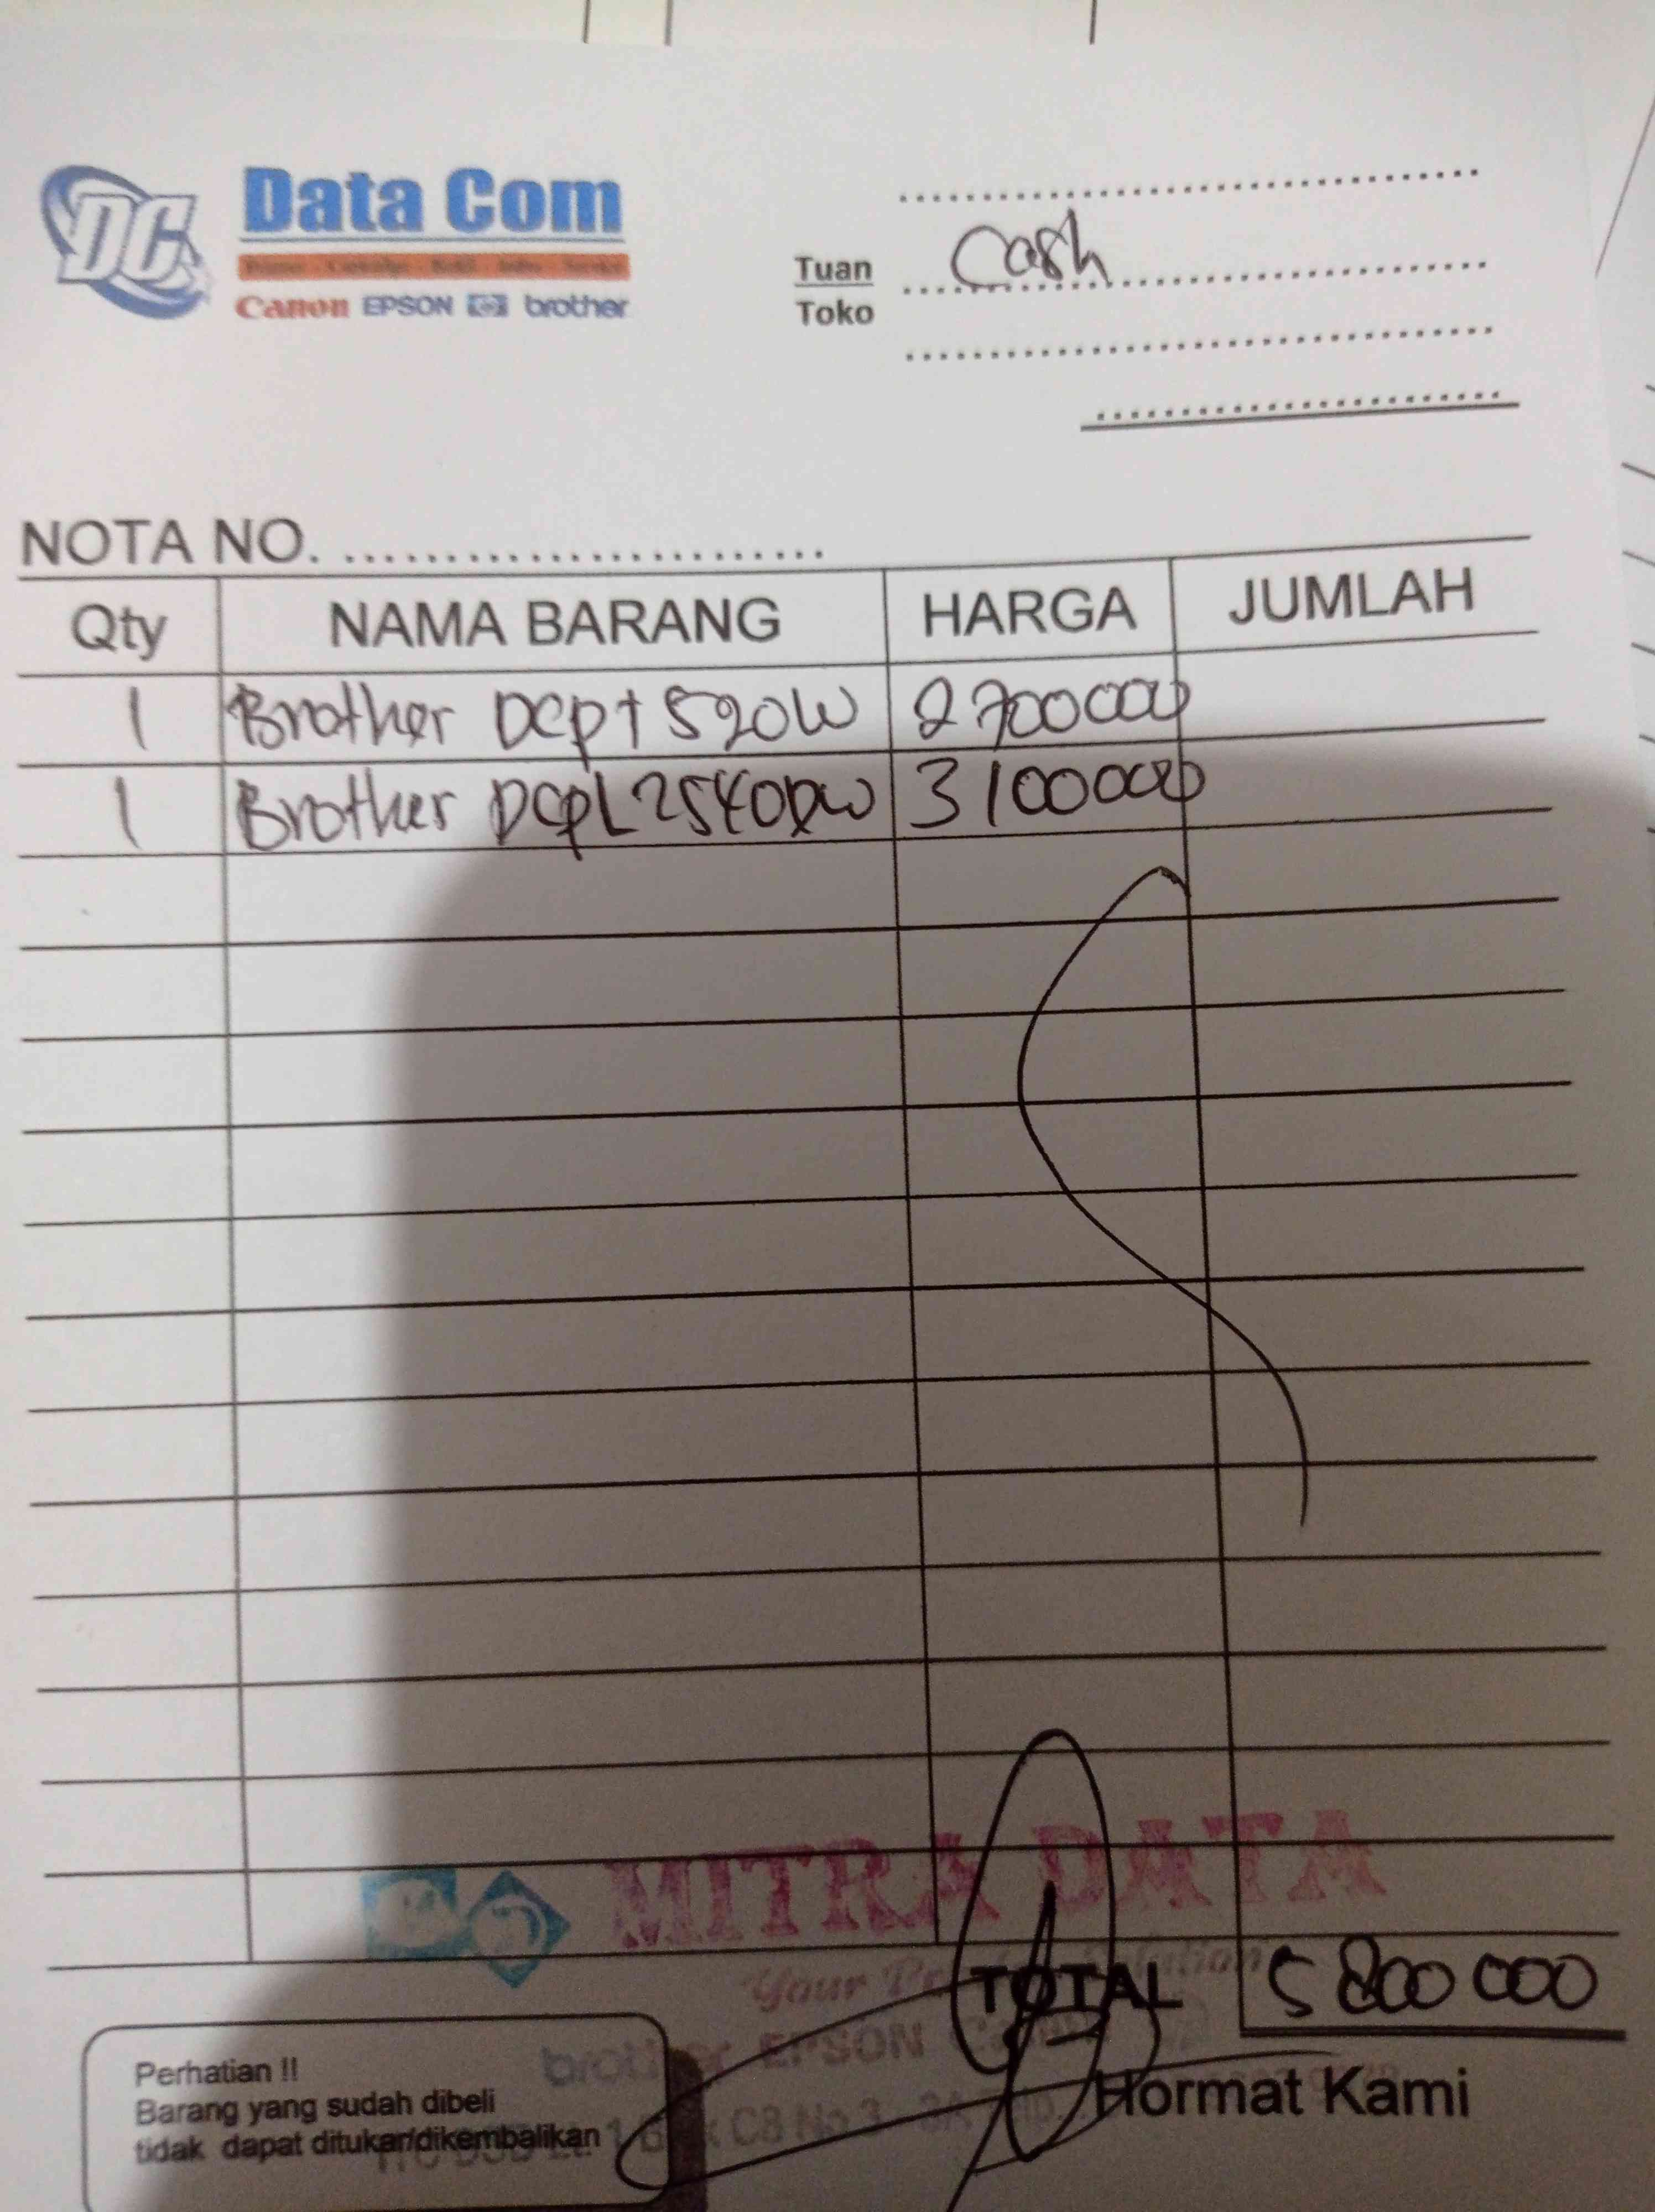 DC
Data Com
Canon EPSON hp brother
Tuan Cash
Toko
NOTA NO.
Qty NAMA BARANG HARGA JUMLAH
1 Brother DCPT 520W 2700000
1 Brother DCPL2540DW 3100000
MITRA DATA
Your
TOTAL 5800000
brother EPSON
Perhatian !!
Hormat Kami
Barang yang sudah dibeli
C8 No 3
tidak dapat ditukar/dikembalikan